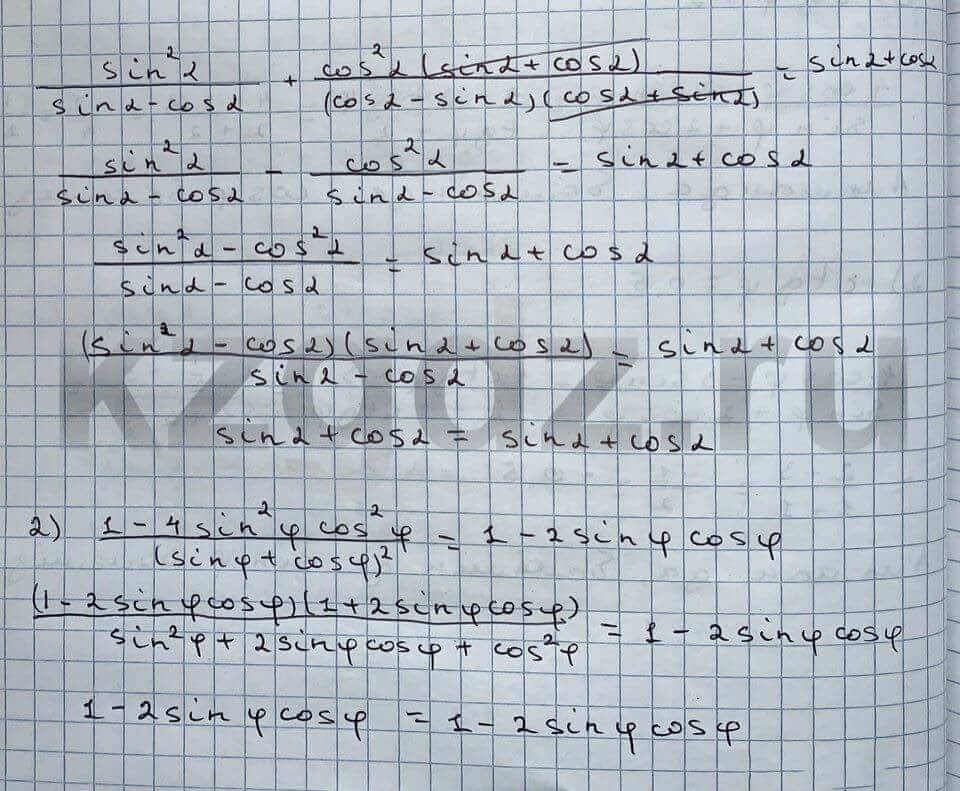 sin²α / (sinα - cosα) + cos²α (sinα + cosα) / ((cosα - sinα)(cosα + sinα)) = sinα + cosα
sin²α / (sinα - cosα) - cos²α / (sinα - cosα) = sinα + cosα
(sin²α - cos²α) / (sinα - cosα) = sinα + cosα
(sin²α - cosα)(sinα + cosα) / (sinα - cosα) = sinα + cosα
kzgdz.ru
sinα + cosα = sinα + cosα
2) (1 - 4 sin²φ cos²φ) / (sinφ + cosφ)² = 1 - 2 sinφ cosφ
(1 - 2 sinφ cosφ)(1 + 2 sinφ cosφ) / (sin²φ + 2 sinφ cosφ + cos²φ) = 1 - 2 sinφ cosφ
1 - 2 sinφ cosφ = 1 - 2 sinφ cosφ